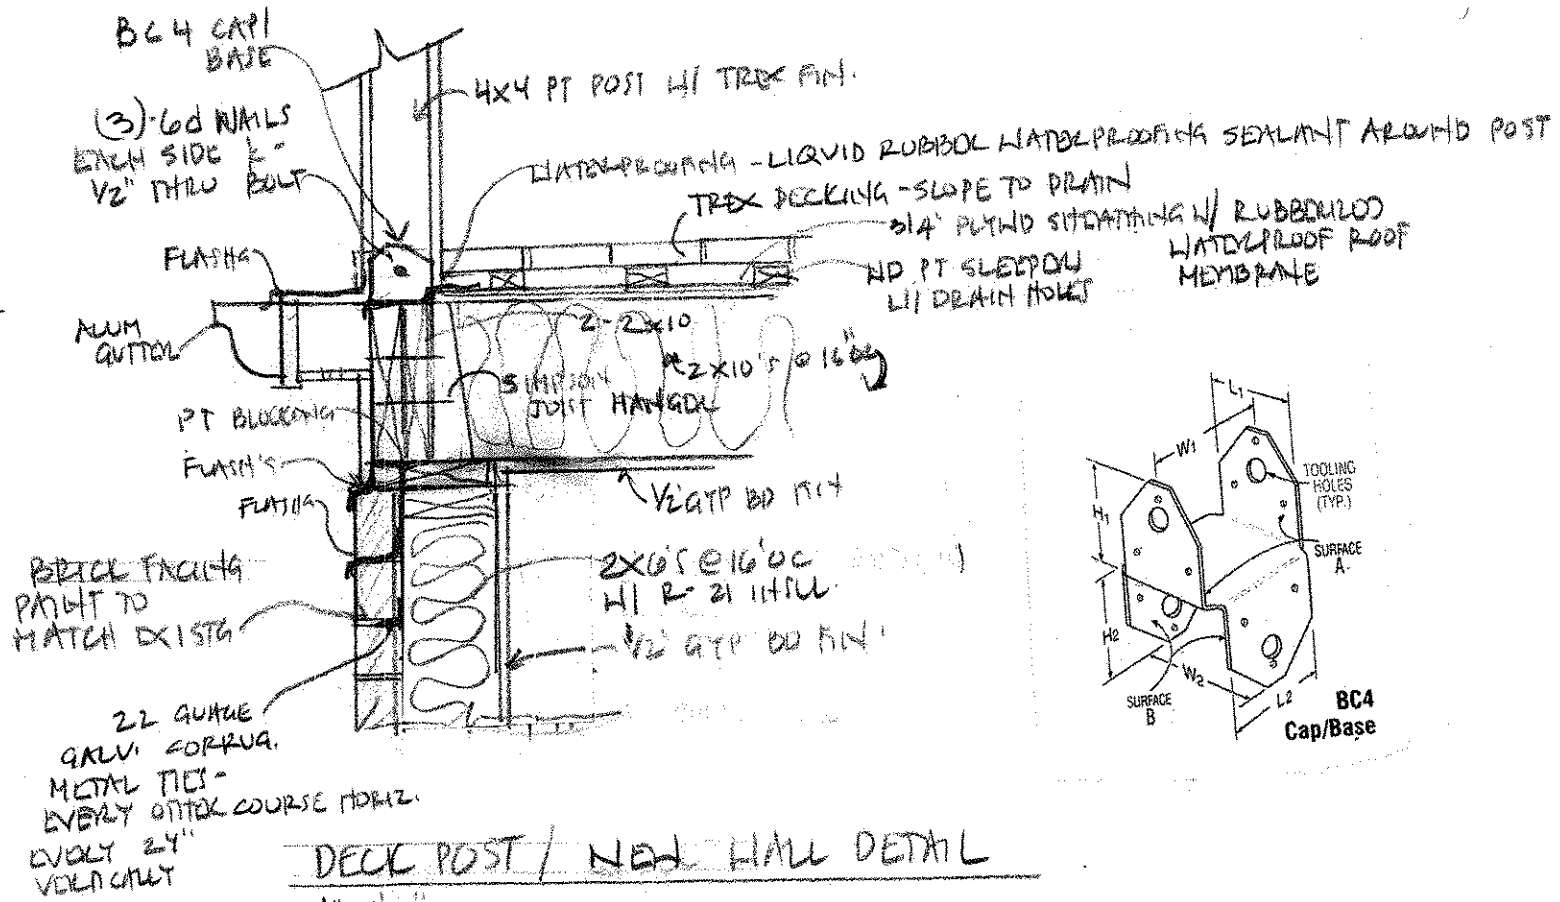 BC4 CAP/
BASE
4X4 PT POST W/ TREX FIN.
(3)-6d NAILS
EACH SIDE &
1/2" THRU BOLT
WATERPROOFING - LIQUID RUBBER WATERPROOFING SEALANT AROUND POST
TREX DECKING - SLOPE TO DRAIN
3/4" PLYWD SHEATHING W/ RUBBERIZED
WATERPROOF ROOF
MEMBRANE
WD PT SLEEPER
W/ DRAIN HOLES
FLASHG
ALUM
GUTTER
2-2x10
2x10's @ 16"OC
SIMPSON
JOIST HANGER
PT BLOCKING
FLASH'G
FLASHG
1/2" GYP BD FIN
BRICK FACING
PAINT TO
MATCH EXISTG
2X6'S @ 16"OC
W/ R-21 INSUL.
1/2" GYP BD FIN.
22 GUAGE
GALV. CORRUG.
METAL TIES -
EVERY OTHER COURSE HORIZ.
EVERY 24"
VERTICALLY
L1
W1
TOOLING
HOLES
(TYP.)
H1
SURFACE
A
H2
W2
SURFACE
B
L2
BC4
Cap/Base
DECK POST / NEW WALL DETAIL